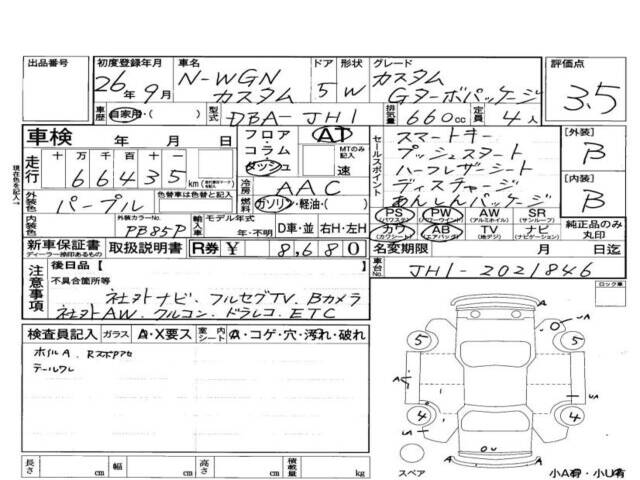 出品番号 初度登録年月 車名 ドア 形状 グレード 評価点
26年9月 N-WGN カスタム 5 W カスタム Gターボパッケージ 3.5
車歴 自家用・( ) 型式 DBA-JH1 排気量 660cc 定員 4人
車検 年 月 日 フロア・コラム・ダッシュ AT MTのみ記入 速 セールスポイント スマートキー [外装] B
走行 十万千百十一 66435km プッシュスタート
ハーフレザーシート
冷房 AAC ディスチャージ [内装] B
外装色 パープル 色替車は色替と記入 燃料 ガソリン・軽油・( ) あんしんパッケージ
内装色 外装カラーNo. PB85P 輸入車 モデル年式 年・不明 D車・並 右H・左H
PS (パワステ) PW (パワーウインド) AW (アルミホイル) SR (サンルーフ) 純正品のみ丸印
カワ (カワシート) AB (エアバック) TV (地デジ) ナビ (ナビゲーション)
新車保証書 ディーラー捺印あるもの 取扱説明書 R券 ¥ 8,680 名変期限 月 日迄
注意事項 後日品【 車台No. JH1-2021846
不具合箇所等 ロック車
社外ナビ、フルセグTV、Bカメラ
社外AW、クルコン、ドラレコ、ETC
検査員記入 ガラス A・X要ス 室内シート A・コゲ・穴・汚れ・破れ
ホイルA
テールワレ
5 5
A UA
A UA
4 4
スペア
長さ cm 幅 cm 高さ cm 積載量 kg 小A有・小U有